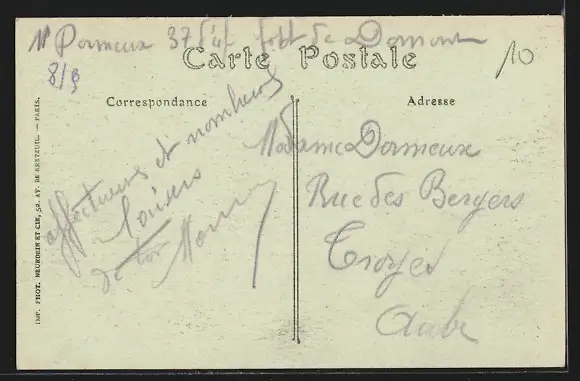 Dormeux 37 fort de Domont
8/9
10
Carte Postale
Correspondance
Adresse
affectueux et nombreux
baisers
de ton
Madame Dormeux
Rue des Bergers
Troyes
Aube
IMP. PHOT. NEURDEIN ET CIE, 52, AV. DE BRETEUIL. — PARIS.